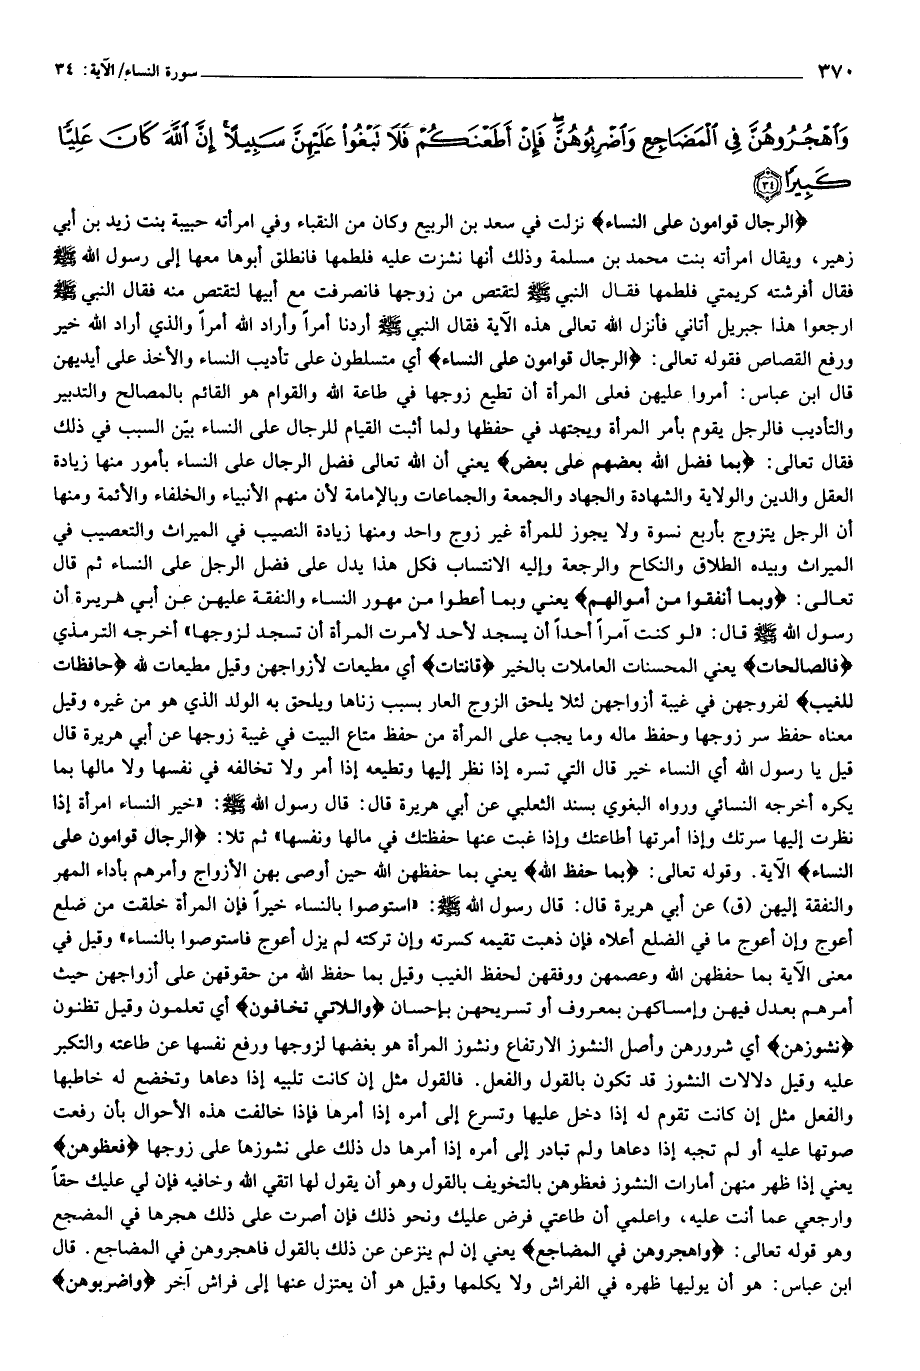 ٣٧٠ سورة النساء/الآية: ٣٤
وَاهْجُرُوهُنَّ فِي الْمَضَاجِعِ وَاضْرِبُوهُنَّ فَإِنْ أَطَعْنَكُمْ فَلَا تَبْغُوا عَلَيْهِنَّ سَبِيلًا إِنَّ اللَّهَ كَانَ عَلِيًّا
كَبِيرًا ٣٤
﴿الرجال قوامون على النساء﴾ نزلت في سعد بن الربيع وكان من النقباء وفي امرأته حبيبة بنت زيد بن أبي
زهير، ويقال امرأته بنت محمد بن مسلمة وذلك أنها نشزت عليه فلطمها فانطلق أبوها معها إلى رسول الله ﷺ
فقال أفرشته كريمتي فلطمها فقال النبي ﷺ لتقتص من زوجها فانصرفت مع أبيها لتقتص منه فقال النبي ﷺ
ارجعوا هذا جبريل أتاني فأنزل الله تعالى هذه الآية فقال النبي ﷺ أردنا أمراً وأراد الله أمراً والذي أراد الله خير
ورفع القصاص فقوله تعالى: ﴿الرجال قوامون على النساء﴾ أي متسلطون على تأديب النساء والأخذ على أيديهن
قال ابن عباس: أمروا عليهن فعلى المرأة أن تطيع زوجها في طاعة الله والقوام هو القائم بالمصالح والتدبير
والتأديب فالرجل يقوم بأمر المرأة ويجتهد في حفظها ولما أثبت القيام للرجال على النساء بيّن السبب في ذلك
فقال تعالى: ﴿بما فضل الله بعضهم على بعض﴾ يعني أن الله تعالى فضل الرجال على النساء بأمور منها زيادة
العقل والدين والولاية والشهادة والجهاد والجمعة والجماعات وبالإمامة لأن منهم الأنبياء والخلفاء والأئمة ومنها
أن الرجل يتزوج بأربع نسوة ولا يجوز للمرأة غير زوج واحد ومنها زيادة النصيب في الميراث والتعصيب في
الميراث وبيده الطلاق والنكاح والرجعة وإليه الانتساب فكل هذا يدل على فضل الرجل على النساء ثم قال
تعالى: ﴿وبما أنفقوا من أموالهم﴾ يعني وبما أعطوا من مهور النساء والنفقة عليهن عن أبي هريرة أن
رسول الله ﷺ قال: «لو كنت آمراً أحداً أن يسجد لأحد لأمرت المرأة أن تسجد لزوجها» أخرجه الترمذي
﴿فالصالحات﴾ يعني المحسنات العاملات بالخير ﴿قانتات﴾ أي مطيعات لأزواجهن وقيل مطيعات لله ﴿حافظات
للغيب﴾ لفروجهن في غيبة أزواجهن لئلا يلحق الزوج العار بسبب زناها ويلحق به الولد الذي هو من غيره وقيل
معناه حفظ سر زوجها وحفظ ماله وما يجب على المرأة من حفظ متاع البيت في غيبة زوجها عن أبي هريرة قال
قيل يا رسول الله أي النساء خير قال التي تسره إذا نظر إليها وتطيعه إذا أمر ولا تخالفه في نفسها ولا مالها بما
يكره أخرجه النسائي ورواه البغوي بسند الثعلبي عن أبي هريرة قال: قال رسول الله ﷺ: «خير النساء امرأة إذا
نظرت إليها سرتك وإذا أمرتها أطاعتك وإذا غبت عنها حفظتك في مالها ونفسها» ثم تلا: ﴿الرجال قوامون على
النساء﴾ الآية. وقوله تعالى: ﴿بما حفظ الله﴾ يعني بما حفظهن الله حين أوصى بهن الأزواج وأمرهم بأداء المهر
والنفقة إليهن (ق) عن أبي هريرة قال: قال رسول الله ﷺ: «استوصوا بالنساء خيراً فإن المرأة خلقت من ضلع
أعوج وإن أعوج ما في الضلع أعلاه فإن ذهبت تقيمه كسرته وإن تركته لم يزل أعوج فاستوصوا بالنساء» وقيل في
معنى الآية بما حفظهن الله وعصمهن ووفقهن لحفظ الغيب وقيل بما حفظ الله من حقوقهن على أزواجهن حيث
أمرهم بعدل فيهن وإمساكهن بمعروف أو تسريحهن بإحسان ﴿واللاتي تخافون﴾ أي تعلمون وقيل تظنون
﴿نشوزهن﴾ أي شرورهن وأصل النشوز الارتفاع ونشوز المرأة هو بغضها لزوجها ورفع نفسها عن طاعته والتكبر
عليه وقيل دلالات النشوز قد تكون بالقول والفعل. فالقول مثل إن كانت تلبيه إذا دعاها وتخضع له خاطبها
والفعل مثل إن كانت تقوم له إذا دخل عليها وتسرع إلى أمره إذا أمرها فإذا خالفت هذه الأحوال بأن رفعت
صوتها عليه أو لم تجبه إذا دعاها ولم تبادر إلى أمره إذا أمرها دل ذلك على نشوزها على زوجها ﴿فعظوهن﴾
يعني إذا ظهر منهن أمارات النشوز فعظوهن بالتخويف بالقول وهو أن يقول لها اتقي الله وخافيه فإن لي عليك حقاً
وارجعي عما أنت عليه، واعلمي أن طاعتي فرض عليك ونحو ذلك فإن أصرت على ذلك هجرها في المضجع
وهو قوله تعالى: ﴿واهجروهن في المضاجع﴾ يعني إن لم ينزعن عن ذلك بالقول فاهجروهن في المضاجع. قال
ابن عباس: هو أن يوليها ظهره في الفراش ولا يكلمها وقيل هو أن يعتزل عنها إلى فراش آخر ﴿واضربوهن﴾